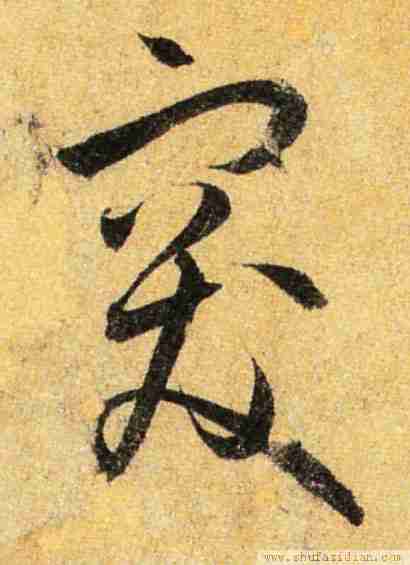 突
www.shufazidian.com